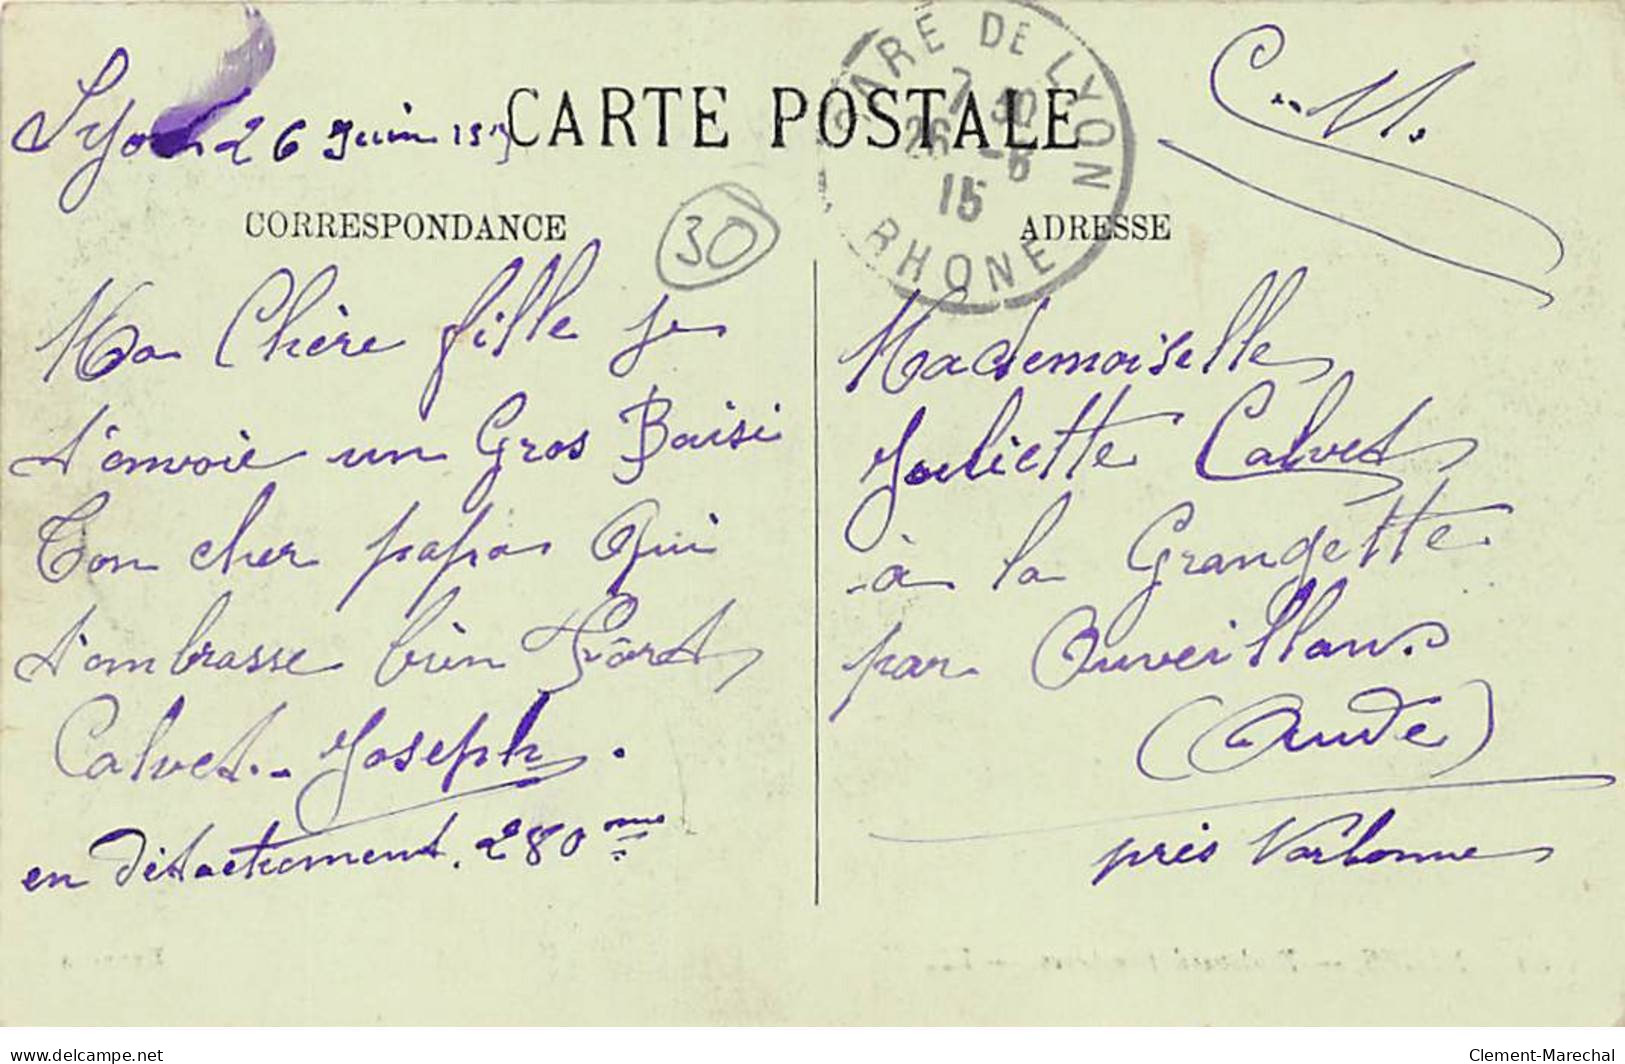 Lyon 26 Juin 15
CARTE POSTALE
GARE DE LYON
7 30
26 -6
15
RHONE
C.M.
CORRESPONDANCE
30
ADRESSE
Ma Chère fille je
t'envoie un Gros Baisé
Ton cher papa Qui
t'embrasse bien Fôret
Calvet.- Joseph.
en Détachement. 280me
Mademoiselle
Juliette Calvet
à la Grangette
par Ouveillan.
(Aude)
près Narbonne
delcampe.net
Clement-Marechal